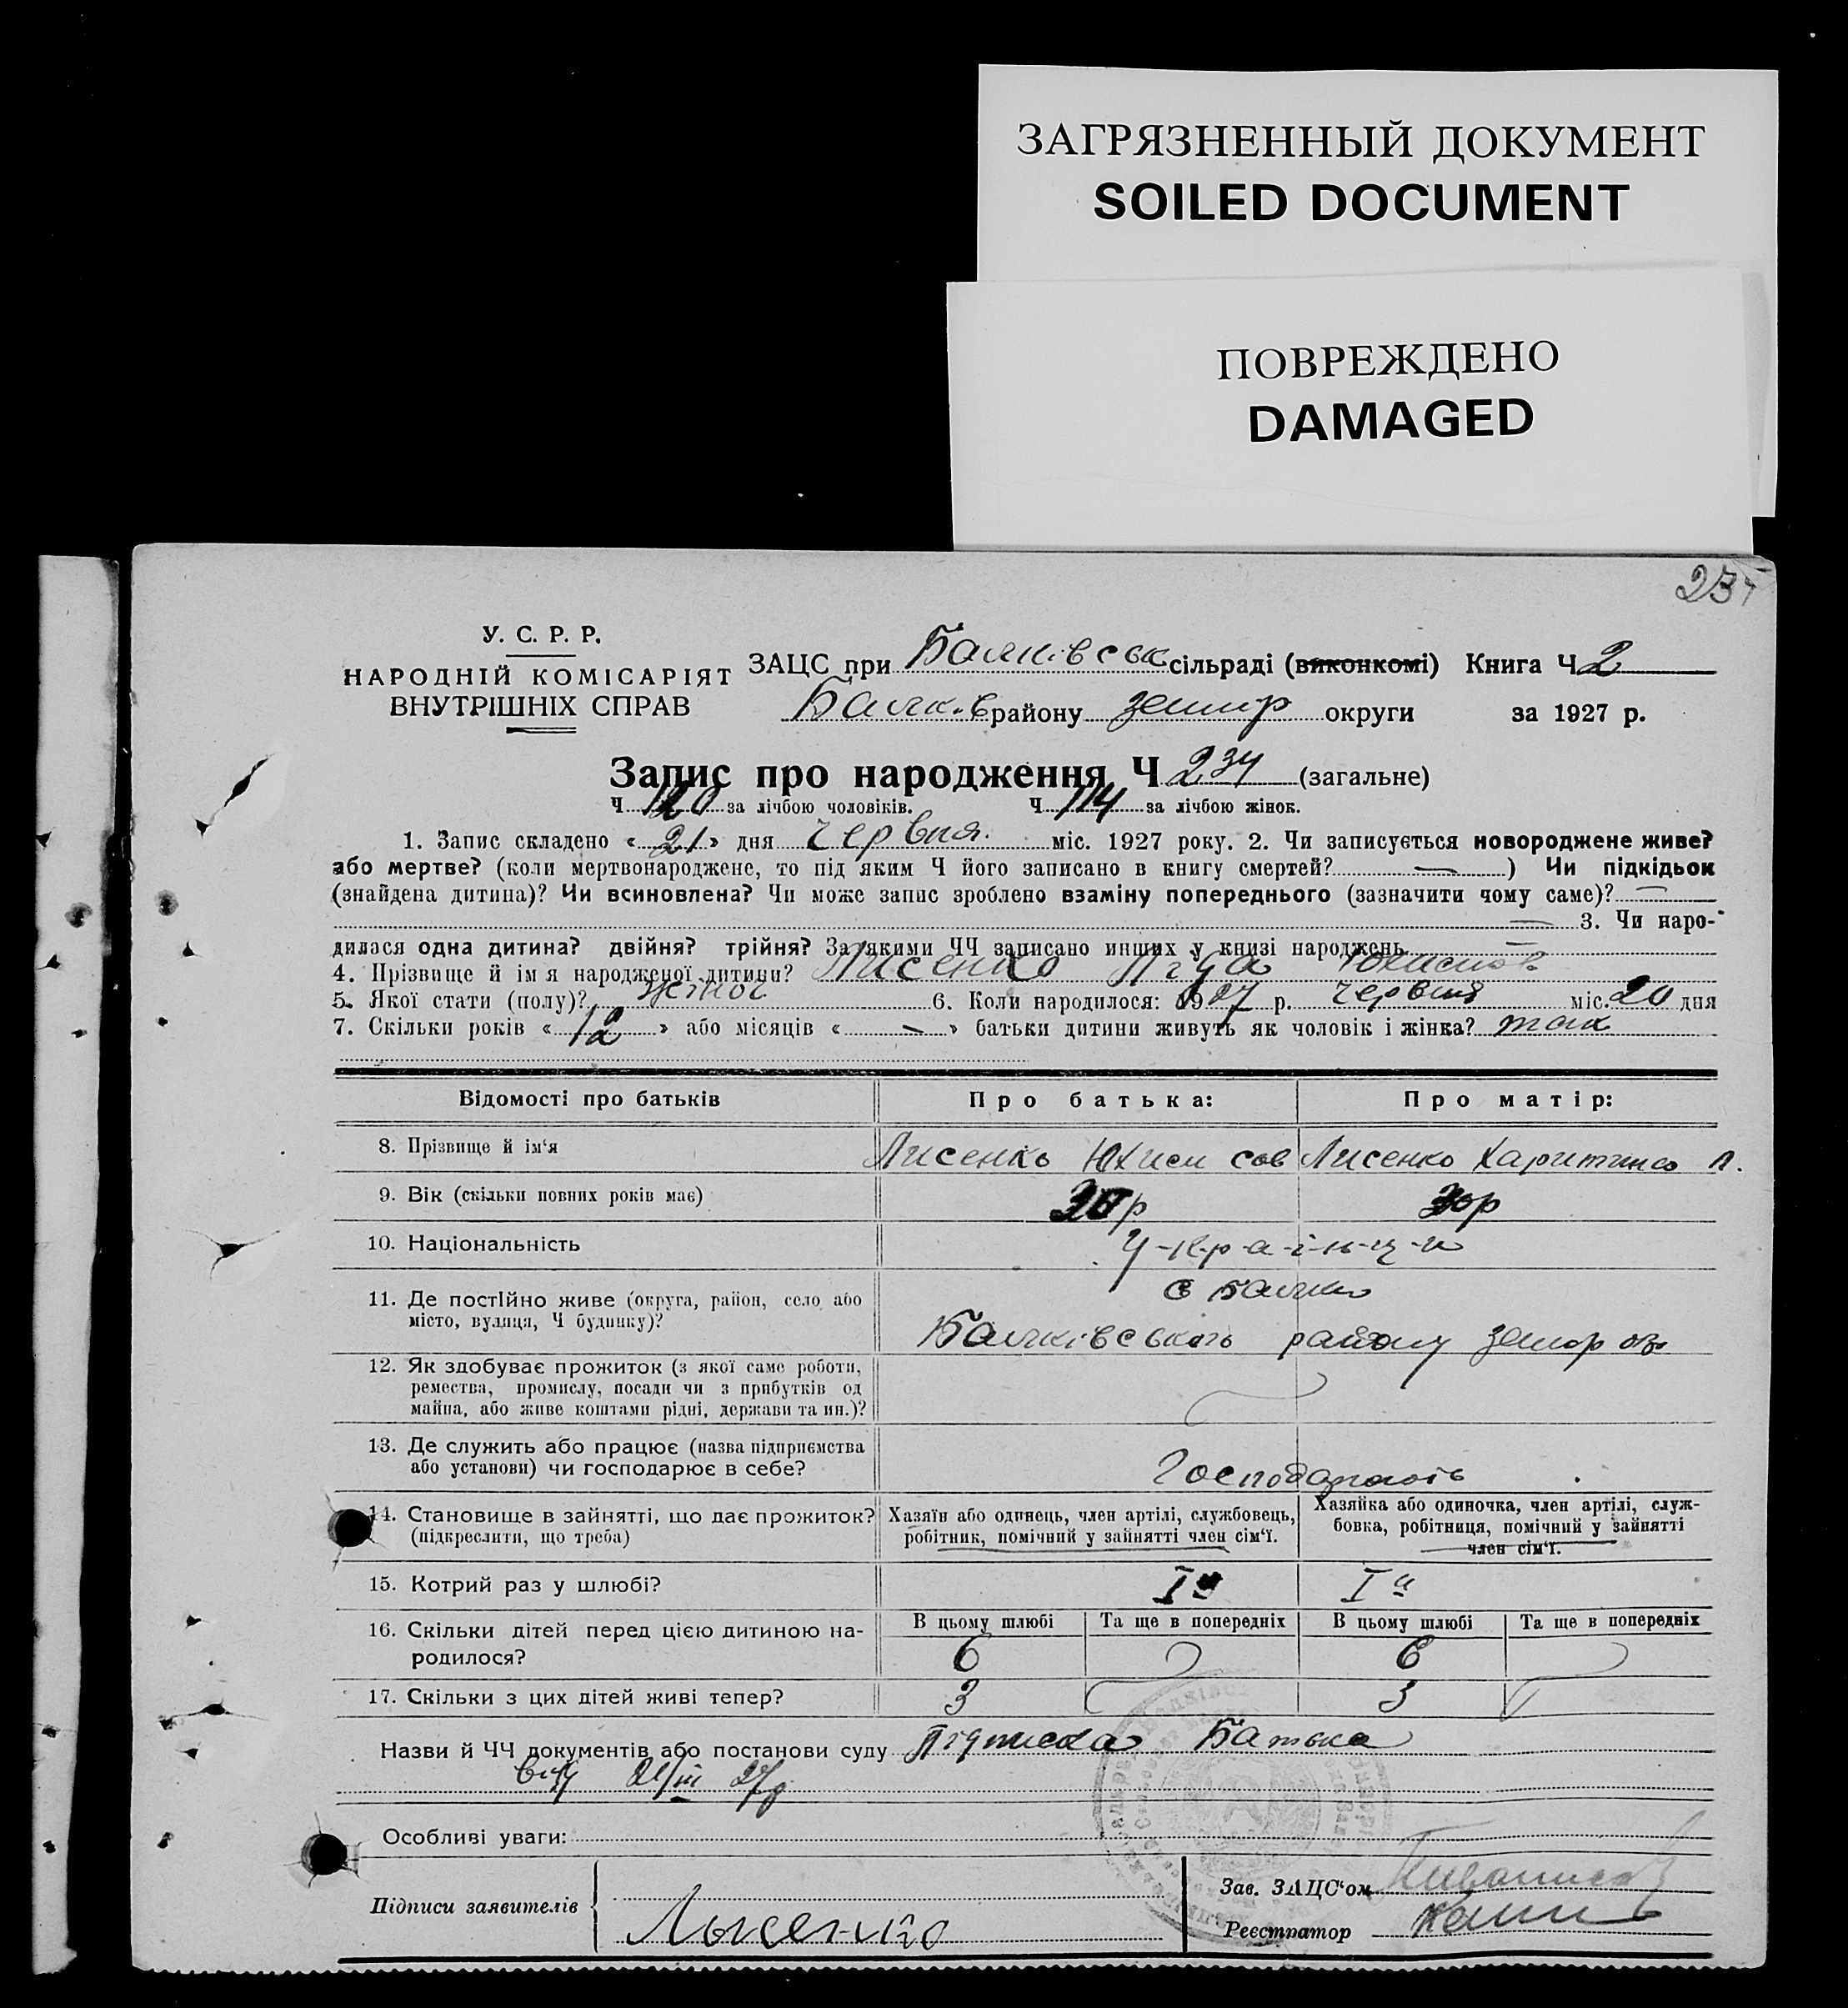 ЗАГРЯЗНЕННЫЙ ДОКУМЕНТ
SOILED DOCUMENT
ПОВРЕЖДЕНО
DAMAGED
У. С. Р. Р.
НАРОДНІЙ КОМІСАРІЯТ
ВНУТРІШНІХ СПРАВ
ЗАЦС при Балківськ сільраді (виконкомі) Книга Ч 2
Балк.в району округи за 1927 р.
Запис про народження Ч 234 (загальне)
Ч 120 за лічбою чоловіків. Ч 114 за лічбою жінок.
1. Запис складено «21» дня червня міс. 1927 року. 2. Чи записується новороджене живе?
або мертве? (коли мертвонароджене, то під яким Ч його записано в книгу смертей? — ) Чи підкідьок
(знайдена дитина)? Чи всиновлена? Чи може запис зроблено взаміну попереднього (зазначити чому саме)? —
— 3. Чи наро-
дилася одна дитина? двійня? трійня? За якими ЧЧ записано инших у книзі народжень —
4. Прізвище й ім я народженої дитини? Лисенко Ліда
5. Якої стати (полу)? жіноч 6. Коли народилося: 1927 р. червня міс. 20 дня
7. Скільки років «12» або місяців « — » батьки дитини живуть як чоловік і жінка? так
Відомості про батьків
Про батька:
Про матір:
8. Прізвище й ім‘я
Лисенко Юхим Сав
Лисенко Харитина П.
9. Вік (скільки повних років має)
30 р
30 р
10. Національність
У-к-р-а-ї-н-ц-и
11. Де постійно живе (округа, район, село або
місто, вулиця, Ч будинку)?
с Балки
Балківського району
12. Як здобуває прожиток (з якої саме роботи,
ремества, промислу, посади чи з прибутків од
майна, або живе коштами рідні, держави та ин.)?
13. Де служить або працює (назва підприємства
або установи) чи господарює в себе?
Господарюють
14. Становище в зайнятті, що дає прожиток?
(підкреслити, що треба)
Хазяїн або одинець, член артілі, службовець,
робітник, помічний у зайнятті член сім‘ї.
Хазяйка або одиночка, член артілі, служ-
бовка, робітниця, помічний у зайнятті
член сім‘ї.
15. Котрий раз у шлюбі?
I й
I й
16. Скільки дітей перед цією дитиною на-
родилося?
В цьому шлюбі
Та ще в попередніх
В цьому шлюбі
Та ще в попередніх
6
6
17. Скільки з цих дітей живі тепер?
3
3
Назви й ЧЧ документів або постанови суду Підписка Батька
Особливі уваги:
Підписи заявителів
Лысенко
Зав. ЗАЦС‘ом
Реєстратор